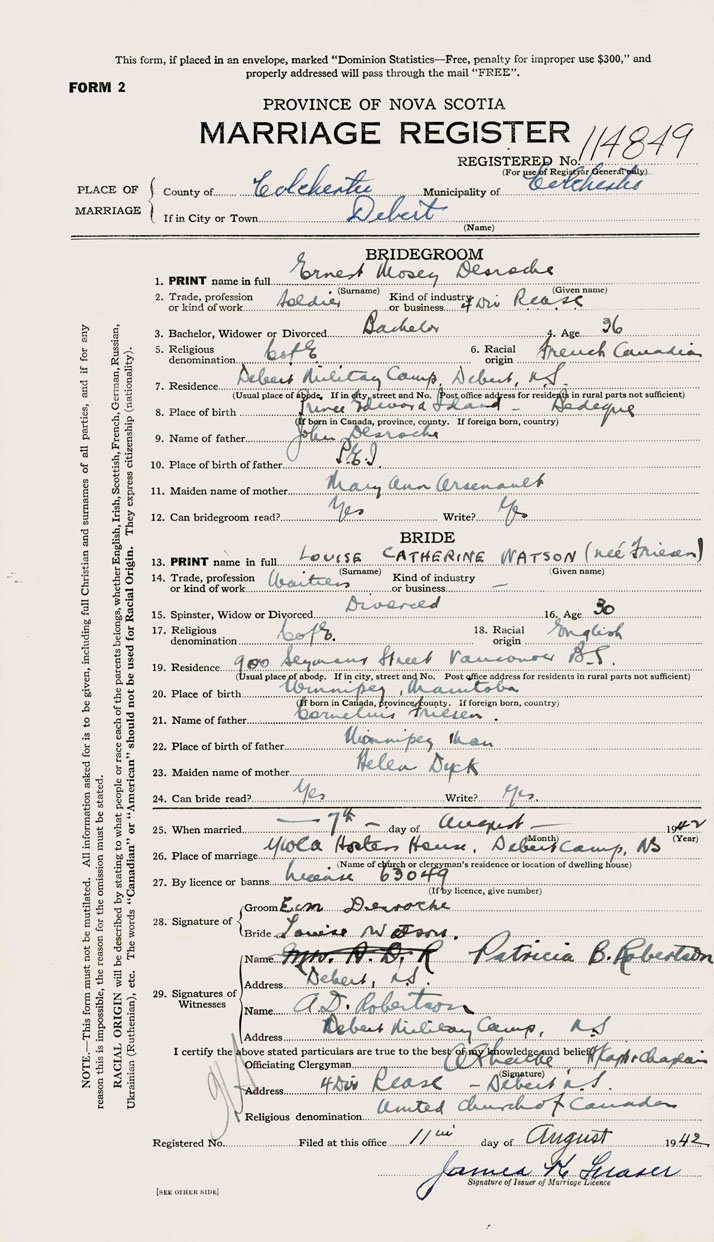 This form, if placed in an envelope, marked "Dominion Statistics—Free, penalty for improper use $300," and
properly addressed will pass through the mail "FREE".
FORM 2
PROVINCE OF NOVA SCOTIA
MARRIAGE REGISTER
REGISTERED No. 114849
(For use of Registrar General only)
PLACE OF MARRIAGE
County of Colchester Municipality of Colchester
If in City or Town Debert
(Name)
BRIDEGROOM
1. PRINT name in full Ernest Mosey Desroche
(Surname) (Given name)
2. Trade, profession or kind of work Soldier Kind of industry or business 4 Div Rease
3. Bachelor, Widower or Divorced Bachelor 4. Age 36
5. Religious denomination C of E 6. Racial origin French Canadian
7. Residence Debert Military Camp, Debert, N.S.
(Usual place of abode. If in city, street and No. Post office address for residents in rural parts not sufficient)
8. Place of birth Prince Edward Island - Bedeque
(If born in Canada, province, county. If foreign born, country)
9. Name of father John Desroche
10. Place of birth of father P.E.I
11. Maiden name of mother Mary Ann Arsenault
12. Can bridegroom read? Yes Write? Yes
BRIDE
13. PRINT name in full LOUISE CATHERINE WATSON (neé Friesen)
(Surname) (Given name)
14. Trade, profession or kind of work Waitress Kind of industry or business —
15. Spinster, Widow or Divorced Divorced 16. Age 30
17. Religious denomination C of E. 18. Racial origin English
19. Residence 900 Seymour Street Vancouver B.C.
(Usual place of abode. If in city, street and No. Post office address for residents in rural parts not sufficient)
20. Place of birth Winnipeg, Manitoba
(If born in Canada, province, county. If foreign born, country)
21. Name of father Cornelius Friesen.
22. Place of birth of father Winnipeg Man
23. Maiden name of mother Helen Dyck
24. Can bride read? Yes Write? Yes.
25. When married — 7th — day of August — 1942
(Month) (Year)
26. Place of marriage Hostess House, Debert Camp, NS
(Name of church or clergyman's residence or location of dwelling house)
27. By licence or banns license 63049
(If by licence, give number)
28. Signature of
Groom E M Desroche
Bride Louise Watson.
29. Signatures of Witnesses
Name Mrs. A. D. R Patricia B. Robertson
Address Debert, N.S.
Name A. D. Robertson
Address Debert Military Camp, N.S
I certify the above stated particulars are true to the best of my knowledge and belief.
Officiating Clergyman H/Capt & Chaplain
(Signature)
Address 4 Div Rease - Debert N.S.
Religious denomination United Church of Canada
Registered No. Filed at this office 11th day of August 1942
James K Fraser
Signature of Issuer of Marriage Licence
[SEE OTHER SIDE]
NOTE.—This form must not be mutilated. All information asked for is to be given, including full Christian and surnames of all parties, and if for any
reason this is impossible, the reason for the omission must be stated.
RACIAL ORIGIN will be described by stating to what people or race each of the parents belongs, whether English, Irish, Scottish, French, German, Russian,
Ukrainian (Ruthenian), etc. The words "Canadian" or "American" should not be used for Racial Origin. They express citizenship (nationality).